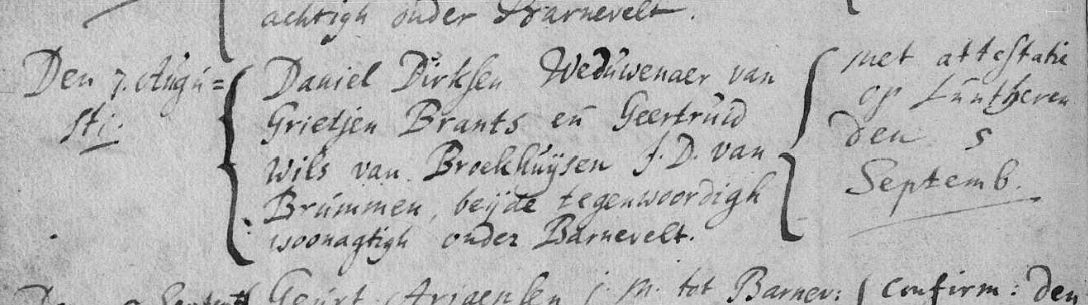 achtigh onder Barnevelt.
Den 7. Augu=
sti.
Daniel Dirksen Weduwenaer van
Grietjen Brants en Geertruid
Wils van Broekhuijsen J.D. van
Brummen, beijde tegenwoordigh
woonagtigh onder Barnevelt.
met attestatie
op Luntheren
den 5
Septemb.
Geurt Arisensen j. m. tot Barnev:
Confirm: Den